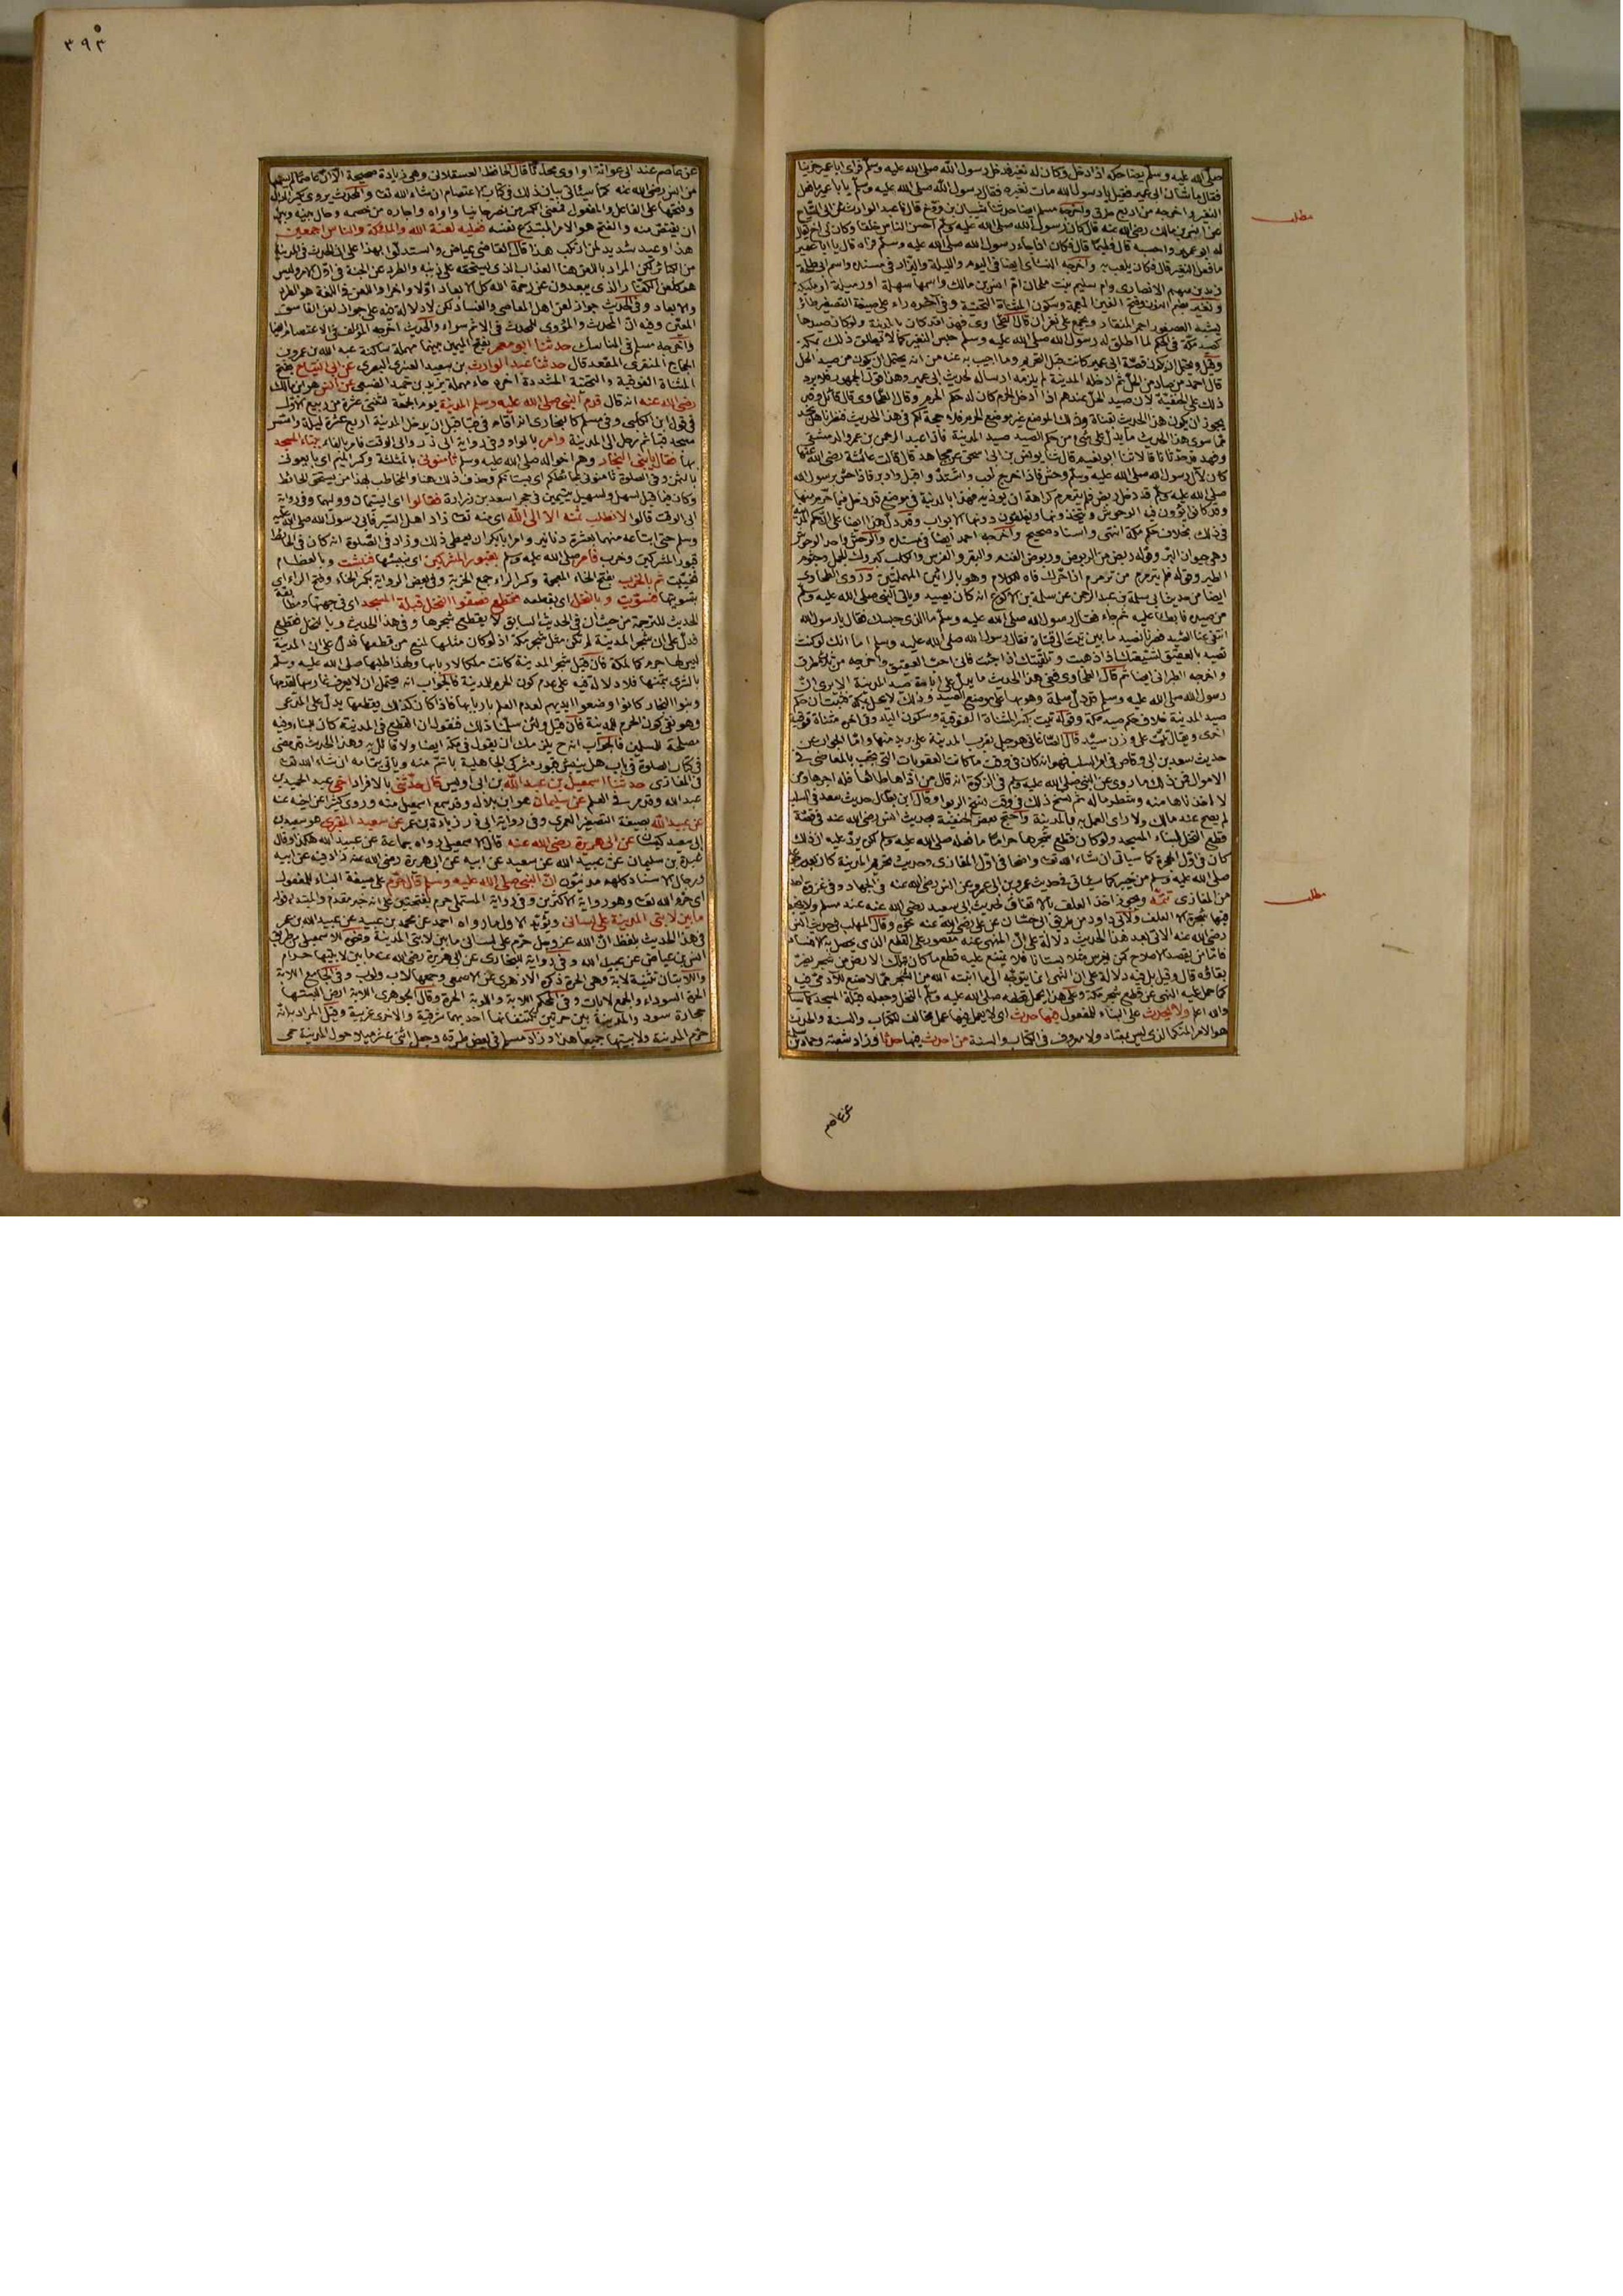 ٣٩٣
صلى الله عليه وسلم يضاحكه اذا دخل وكان له نغير فدخل رسول الله صلى الله عليه وسلم فراى ابا عمير حزينا
فقال ما شان ابى عمير فقيل يا رسول الله مات نغيره فقال رسول الله صلى الله عليه وسلم يا ابا عمير ما فعل
النغير واخرجه من اربع طرق واخرجه مسلم ايضا حدثنا شيبان بن فروخ قال ثنا عبد الوارث عن ابى التياح
عن انس بن مالك رضى الله عنه قال كان رسول الله صلى الله عليه وسلم احسن الناس خلقا وكان لى اخ يقال
له ابو عمير واحسبه قال فطيما قال فكان اذا جاء رسول الله صلى الله عليه وسلم فراه قال يا ابا عمير
ما فعل النغير قال فكان يلعب به واخرجه النسائى ايضا فى اليوم والليلة والبزار فى مسنده واسم ابى طلحة
زيد بن سهل الانصارى وام سليم بنت ملحان ام انس بن مالك واسمها سهلة او رميلة او مليكة
ونغير بضم النون وفتح الغين المعجمة وسكون المثناة التحتية وفى اخره راء على صيغة التصغير طائر
يشبه العصفور احمر المنقار ويجمع على نغران قال الطحاوى فهذا قد كان بالمدينة ولو كان صيدها
كصيد مكة فى الحكم لما اطلق له رسول الله صلى الله عليه وسلم حبس النغير كما لا يطلق ذلك بمكة
قال احمد من صاد من الحل ثم ادخله المدينة لم يلزمه ارساله لحديث ابى عمير وهذا قول الجمهور
ذلك على الحنفية لان صيد الحل عندهم اذا ادخل الحرم كان له حكم الحرم وقال الطحاوى
مما سوى هذا الحديث ما يدل على شئ من حكم الصيد صيد المدينة فاذا عبد الرحمن بن عمرو الدمشقى
وفهد قد حدثانا قالا ثنا ابو نعيم قال ثنا يونس بن ابى اسحق عن مجاهد قال قالت عائشة رضى الله عنها
كان لآل رسول الله صلى الله عليه وسلم وحش فاذا خرج لعب واشتد واقبل وادبر فاذا حس برسول الله
صلى الله عليه وسلم قد دخل ربض فلم يترمرم كراهة ان يوذيه فهذا بالمدينة فى موضع قد دخل فيما حرم منها
وقد كانوا يؤوون فيه الوحوش ويتخذونها ويغلقون دونها الابواب وقد دل هذا ايضا على ان حكم المدينة
فى ذلك بخلاف حكم مكة انتهى واسناده صحيح واخرجه احمد ايضا فى مسنده والوحش واحد الوحوش
وهى حيوان البر وقوله ربض من الربوض وربوض الغنم والبقر والفرس والكلب كبروك الجمل وجثوم
الطير وقوله فلم يترمرم من ترمرم اذا حرك فاه للكلام وهو بالرائين المهملتين وروى الطحاوى
ايضا من حديث ابى سلمة بن عبد الرحمن عن سلمة بن الاكوع انه كان يصيد ويأتى النبى صلى الله عليه وسلم
من صيده فابطأ عليه ثم جاء فقال رسول الله صلى الله عليه وسلم ما الذى حبسك فقال يا رسول الله
انتفى عنا الصيد فصرنا نصيد ما بين تيت الى قناة فقال رسول الله صلى الله عليه وسلم اما انك لو كنت
تصيد بالعقيق لشيعتك اذا ذهبت وتلقيتك اذا جئت فانى احب العقيق واخرجه من ثلاث طرق
واخرجه الطبرانى ايضا ثم قال الطحاوى ففى هذا الحديث ما يدل على اباحة صيد المدينة الا يرى ان
رسول الله صلى الله عليه وسلم قد دل سلمة وهو بها على موضع الصيد وذلك لا يحل بمكة فثبت ان حكم
صيد المدينة خلاف حكم صيد مكة وقوله تيت بكسر المثناة الفوقية وسكون الياء وفى اخره مثناة فوقية
اخرى ويقال تيت على وزن سيد قال الصاغانى هو جبل بقرب المدينة على بريد منها واما الجواب عن
حديث سعد بن ابى وقاص فى امر السلب فهو انه كان فى وقت ما كانت العقوبات التى تجب بالمعاصى فى
الاموال فمن ذلك ما روى عن النبى صلى الله عليه وسلم فى الزكوة انه قال من اداها طائعا فله اجرها ومن
لا اخذناها منه وشطر ماله ثم نسخ ذلك فى وقت نسخ الربوا وقال ابن بطال حديث سعد فى السلب
لم يصح عند مالك ولا راى العمل به بالمدينة واحتج بعض الحنفية بحديث انس رضى الله عنه فى قصة
قطع النخل لبناء المسجد ولو كان قطع شجرها حراما ما فعله صلى الله عليه وسلم لكن يرد عليه ان ذلك
كان فى اول الهجرة كما سياتى ان شاء الله تعالى واضحا فى اول المغازى وحديث تحريم المدينة كان بعد رجوعه
صلى الله عليه وسلم من خيبر كما سيأتى فى حديث عمرو بن ابى عمرو عن انس رضى الله عنه فى الجهاد وفى غزوة احد
من المغازى تتمة ويجوز اخذ العلف بالاتفاق لحديث ابى سعيد رضى الله عنه عند مسلم ولا يخبط
فيها شجرة الا لعلف ولابى داود من طريق ابى حسان عن على رضى الله عنه نحوه وقال المهلب فى حديث انس
رضى الله عنه الاتى بعد هذا الحديث دلالة على ان المنهى عنه مقصور على القطع الذى يحصل به الافساد
فاما من يقصد الاصلاح كمن يغرس مثلا بستانا فلا يمتنع عليه قطع ما كان بتلك الارض من شجر يضر
بقاؤه قال وقيل بل فيه دلالة على ان النهى انما يتوجه الى ما انبته الله من الشجر مما لا صنع للآدمى فيه
كما حمل عليه النهى عن قطع شجر مكة وعلى هذا يحمل قطعه صلى الله عليه وسلم النخل وجعله قبلة المسجد
والله اعلم ولا يحدث على البناء للمفعول فيها حدث اى لا يعمل فيها عمل مخالف للكتاب والسنة والحدث
هو الامر المنكر الذى ليس بمعتاد ولا معروف فى الكتاب والسنة من احدث فيها حدثا وزاد شعبة وحماد بن سلمة
مطلب
مطلب
عن عاصم
عن عاصم عند ابى عوانة او اوى محدثا قال الحافظ العسقلانى وهى زيادة صحيحة الا ان عاصما لم يسمعها
من انس رضى الله عنه كما سيأتى بيان ذلك فى كتاب الاعتصام ان شاء الله تعالى والحديث يروى بكسر الدال
وفتحها على الفاعل والمفعول فمعنى الكسر من نصر جانيا واواه واجاره من خصمه وحال بينه وبين
ان يقتص منه والفتح هو الامر المبتدع نفسه فعليه لعنة الله والملائكة والناس اجمعين
هذا وعيد شديد لمن ارتكب هذا قال القاضى عياض واستدلوا بهذا على ان الحدث فى المدينة
من الكبائر لكن المراد باللعن هنا العذاب الذى يستحقه على ذنبه والطرد عن الجنة فى اول الامر وليس
هو كلعن الكفار الذى يبعدون عن رحمة الله كل الابعاد اولا واخرا واللعن فى اللغة هو الطرد
والابعاد وفى الحديث جواز لعن اهل المعاصى والفساد لكن لا دلالة فيه على جواز لعن الفاسق
المعين وفيه ان المحدث والمؤوى للمحدث فى الاثم سواء والحديث اخرجه المؤلف فى الاعتصام ايضا
واخرجه مسلم فى المناسك حدثنا ابو معمر بفتح الميمين بينهما مهملة ساكنة عبد الله بن عمرو بن
الحجاج المنقرى المقعد قال حدثنا عبد الوارث بن سعيد العنبرى البصرى عن ابى التياح بفتح
المثناة الفوقية والتحتية المشددة اخره حاء مهملة يزيد بن حميد الضبعى عن انس هو بن مالك
رضى الله عنه انه قال قدم النبى صلى الله عليه وسلم المدينة يوم الجمعة لثنتى عشرة من ربيع الاول
فى قول ابن الكلبى وفى مسلم كالبخارى انه اقام فى قبا قبل ان يدخل المدينة اربع عشرة ليلة واسس
مسجد قبا ثم رحل الى المدينة وامر بالواو وفى رواية ابى ذر وابى الوقت فامر بالفاء ببناء المسجد
بها فقال يا بنى النجار وهم اخواله صلى الله عليه وسلم ثامنونى بالمثلثة وكسر الميم اى بايعونى
بالثمن وفى الصلوة ثامنونى بحائطكم اى ببستانكم وحذف ذلك هنا والمخاطب بهذا من يستحق الحائط
وكان فيما قيل لسهل وسهيل يتيمين فى حجر اسعد بن زرارة فقالوا اى اليتيمان ووليهما وفى رواية
ابى الوقت قالوا لا نطلب ثمنه الا الى الله اى منه تعالى زاد اهل السير فابى رسول الله صلى الله عليه
وسلم حتى ابتاعه منهما بعشرة دنانير وامر ابا بكر ان يعطى ذلك وزاد فى الصلوة انه كان فى الحائط
قبور المشركين وخرب فامر صلى الله عليه وسلم بقبور المشركين اى بنبشها فنبشت وبالعظام
فغيبت ثم بالخرب بفتح الخاء المعجمة وكسر الراء جمع الخربة وفى بعض الرواية بكسر الخاء وفتح الراء اى
بتسويتها فسويت وبالنخل اى بقطعه فقطع فصفوا النخل قبلة المسجد اى فى جهتها ومطابقة
الحديث للترجمة من حيث ان فى الحديث السابق لا يقطع شجرها وفى هذا الحديث وبالنخل فقطع
فدل على ان شجر المدينة لم تكن مثل شجر مكة اذ لو كان مثلها لمنع من قطعها فدل على ان المدينة
ليس لها حرم كما لمكة فان قيل شجر المدينة كانت ملكا لاربابها ولهذا طلبها صلى الله عليه وسلم
بالشرى بثمنها فلا دلالة فيه على عدم كون الحرم للمدينة فالجواب انه يحتمل ان لا يعرف غارسها لقدمها
وبنوا النجار كانوا وضعوا ايديهم لعدم العلم باربابها فاذا كان كذلك فقطعها يدل على المدعى
وهو نفى كون الحرم للمدينة فان قيل ولئن سلمنا ذلك فنقول ان القطع فى المدينة كان للبناء وفيه
مصلحة للمسلمين فالجواب انه ح يلزمك ان تقول فى مكة ايضا ولا قائل به وهذا الحديث قد مضى
فى كتاب الصلوة فى باب هل ينبش قبور مشركى الجاهلية باتم منه وياتى بتمامه ان شاء الله تعالى
فى المغازى حدثنا اسمعيل بن عبد الله بن ابى اويس قال حدثنى بالافراد اخى عبد الحميد بن
عبد الله وقد مر فى العلم عن سليمان هو ابن بلال وقد سمع اسمعيل منه وروى كثيرا عن اخيه عنه
عن عبيد الله بصيغة التصغير العمرى وفى رواية ابى ذر زيادة بن عمر عن سعيد المقبرى هو سعيد بن
ابى سعيد كيسان عن ابى هريرة رضى الله عنه قال الاسمعيلى رواه جماعة عن عبيد الله هكذا وقال
عبدة بن سليمان عن عبيد الله عن سعيد عن ابيه عن ابى هريرة رضى الله عنه زاد فيه عن ابيه
ورجال الاسناد كلهم مدنيون ان النبى صلى الله عليه وسلم قال حرم على صيغة البناء للمفعول
اى حرم الله تعالى وهو رواية الاكثرين وفى رواية المستملى حرم بفتحتين على انه خبر مقدم والمبتدأ قوله
ما بين لابتى المدينة على لسانى ويؤيد الاول ما رواه احمد عن محمد بن عبيد عن عبيد الله بن عمر
فى هذا الحديث بلفظ ان الله عز وجل حرم على لسانى ما بين لابتى المدينة ونحوه للاسمعيلى من طريق
انس بن عياض عن عبيد الله وفى رواية للبخارى عن ابى هريرة رضى الله عنه ما بين لابتيها حرام
واللابتان تثنية لابة وهى الحرة ذكره الازهرى عن الاصمعى وجمعها لاب ولوب وفى الجامع اللابة
الحرة السوداء والجمع لابات وفى المحكم اللابة واللوبة الحرة وقال الجوهرى اللابة ارض البستها
حجارة سود والمدينة بين حرتين تكتنفانها احديهما شرقية والاخرى غربية وقيل المراد به انه
حرم المدينة ولابتيها جميعا هذا وزاد مسلم فى بعض طرقه وجعل اثنى عشر ميلا حول المدينة حمى